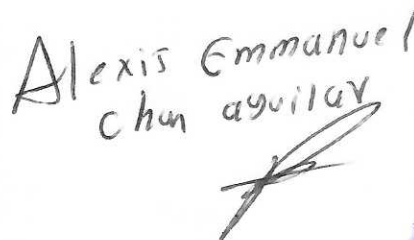 Alexis Emmanuel
chan aguilar